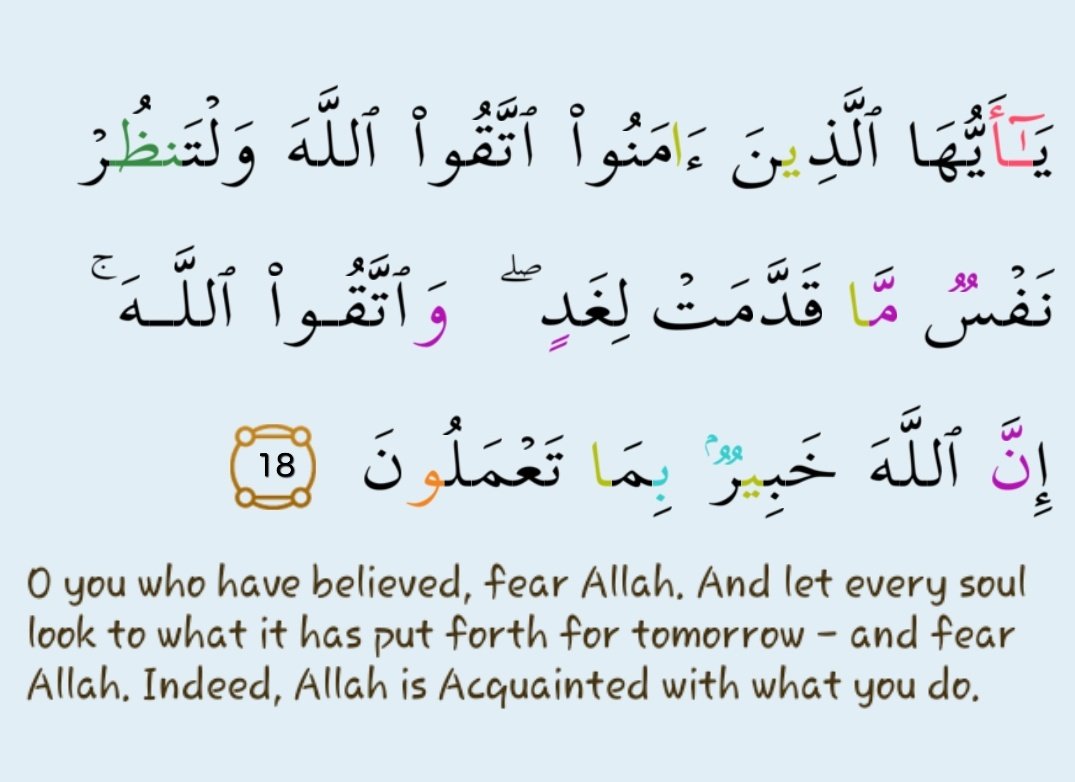 يَـٰٓأَيُّهَا ٱلَّذِينَ ءَامَنُوا۟ ٱتَّقُوا۟ ٱللَّهَ وَلْتَنظُرْ
نَفْسٌ مَّا قَدَّمَتْ لِغَدٍ ۖ وَٱتَّقُوا۟ ٱللَّـهَ ۚ
إِنَّ ٱللَّهَ خَبِيرٌۢ بِمَا تَعْمَلُونَ 18
O you who have believed, fear Allah. And let every soul
look to what it has put forth for tomorrow – and fear
Allah. Indeed, Allah is Acquainted with what you do.